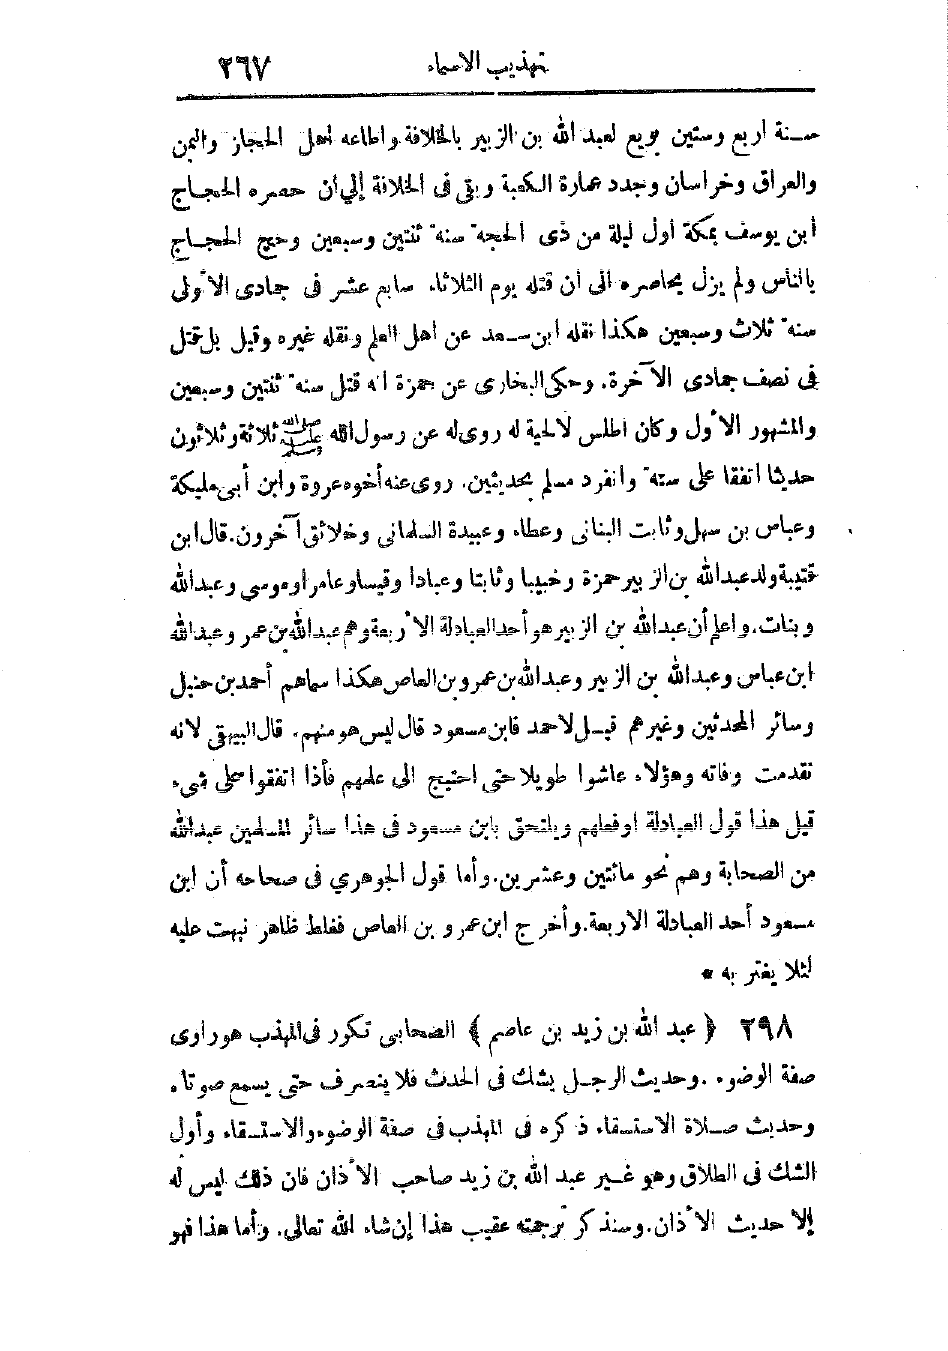 تهذيب الاسماء ٢٦٧
سنة اربع وستين بويع لعبد الله بن الزبير بالخلافة واطاعه اهل الحجاز واليمن
والعراق وخراسان وجدد عمارة الكعبة وبقى فى الخلافة إلي ان حصره الحجاج
ابن يوسف بمكة أول ليلة من ذى الحجه سنه ثنتين وسبعين وحج الحجاج
بالناس ولم يزل يحاصره الى ان قتله يوم الثلاثاء سابع عشر فى جمادى الأولى
سنه ثلاث وسبعين هكذا نقله ابن سعد عن اهل العلم ونقله غيره وقيل بل قتل
فى نصف جمادى الآخرة، وحكى البخارى عن حمزة انه قتل سنه ثنتين وسبعين
والمشهور الأول وكان اطلس لا لحية له روى له عن رسول الله ﷺ ثلاثة وثلاثون
حديثا اتفقا على سته وانفرد مسلم بحديثين، روى عنه أخوه عروة وابن أبى مليكة
وعباس بن سهل وثابت البنانى وعطاء وعبيدة السلمانى وخلائق آخرون. قال ابن
قتيبة ولد عبدالله بن الزبير حمزة وخبيبا وثابتا وعبادا وقيسا وعامرا وموسي وعبدالله
وبنات. واعلم أن عبدالله بن الزبير هو أحد العبادلة الأربعة وهم عبدالله بن عمر وعبدالله
ابن عباس وعبدالله بن الزبير وعبدالله بن عمرو بن العاص هكذا سماهم أحمد بن حنبل
وسائر المحدثين وغيرهم قيل لاحمد فابن مسعود قال ليس هو منهم. قال البيهقي لانه
تقدمت وفاته وهؤلاء عاشوا طويلا حتى احتيج الى علمهم فأذا اتفقوا على شيء
قيل هذا قول العبادلة اوفعلهم ويلتحق بابن مسعود فى هذا سائر المسلمين عبدالله
من الصحابة وهم نحو مائتين وعشرين. وأما قول الجوهري فى صحاحه أن ابن
مسعود أحد العبادلة الاربعة. وأخرج ابن عمرو بن العاص فغلط ظاهر نبهت عليه
لئلا يغتر به *
٢٩٨ ﴿ عبد الله بن زيد بن عاصم ﴾ الصحابى تكرر فى المهذب هو راوى
صفة الوضوء. وحديث الرجل يشك فى الحدث فلا ينصرف حتى يسمع صوتا.
وحديث صلاة الاستسقاء ذكره فى المهذب فى صفة الوضوء والاستسقاء وأول
الشك فى الطلاق وهو غير عبد الله بن زيد صاحب الأذان فان ذلك ليس له
إلا حديث الأذان. وسنذكر ترجمته عقيب هذا إن شاء الله تعالى. وأما هذا فهو